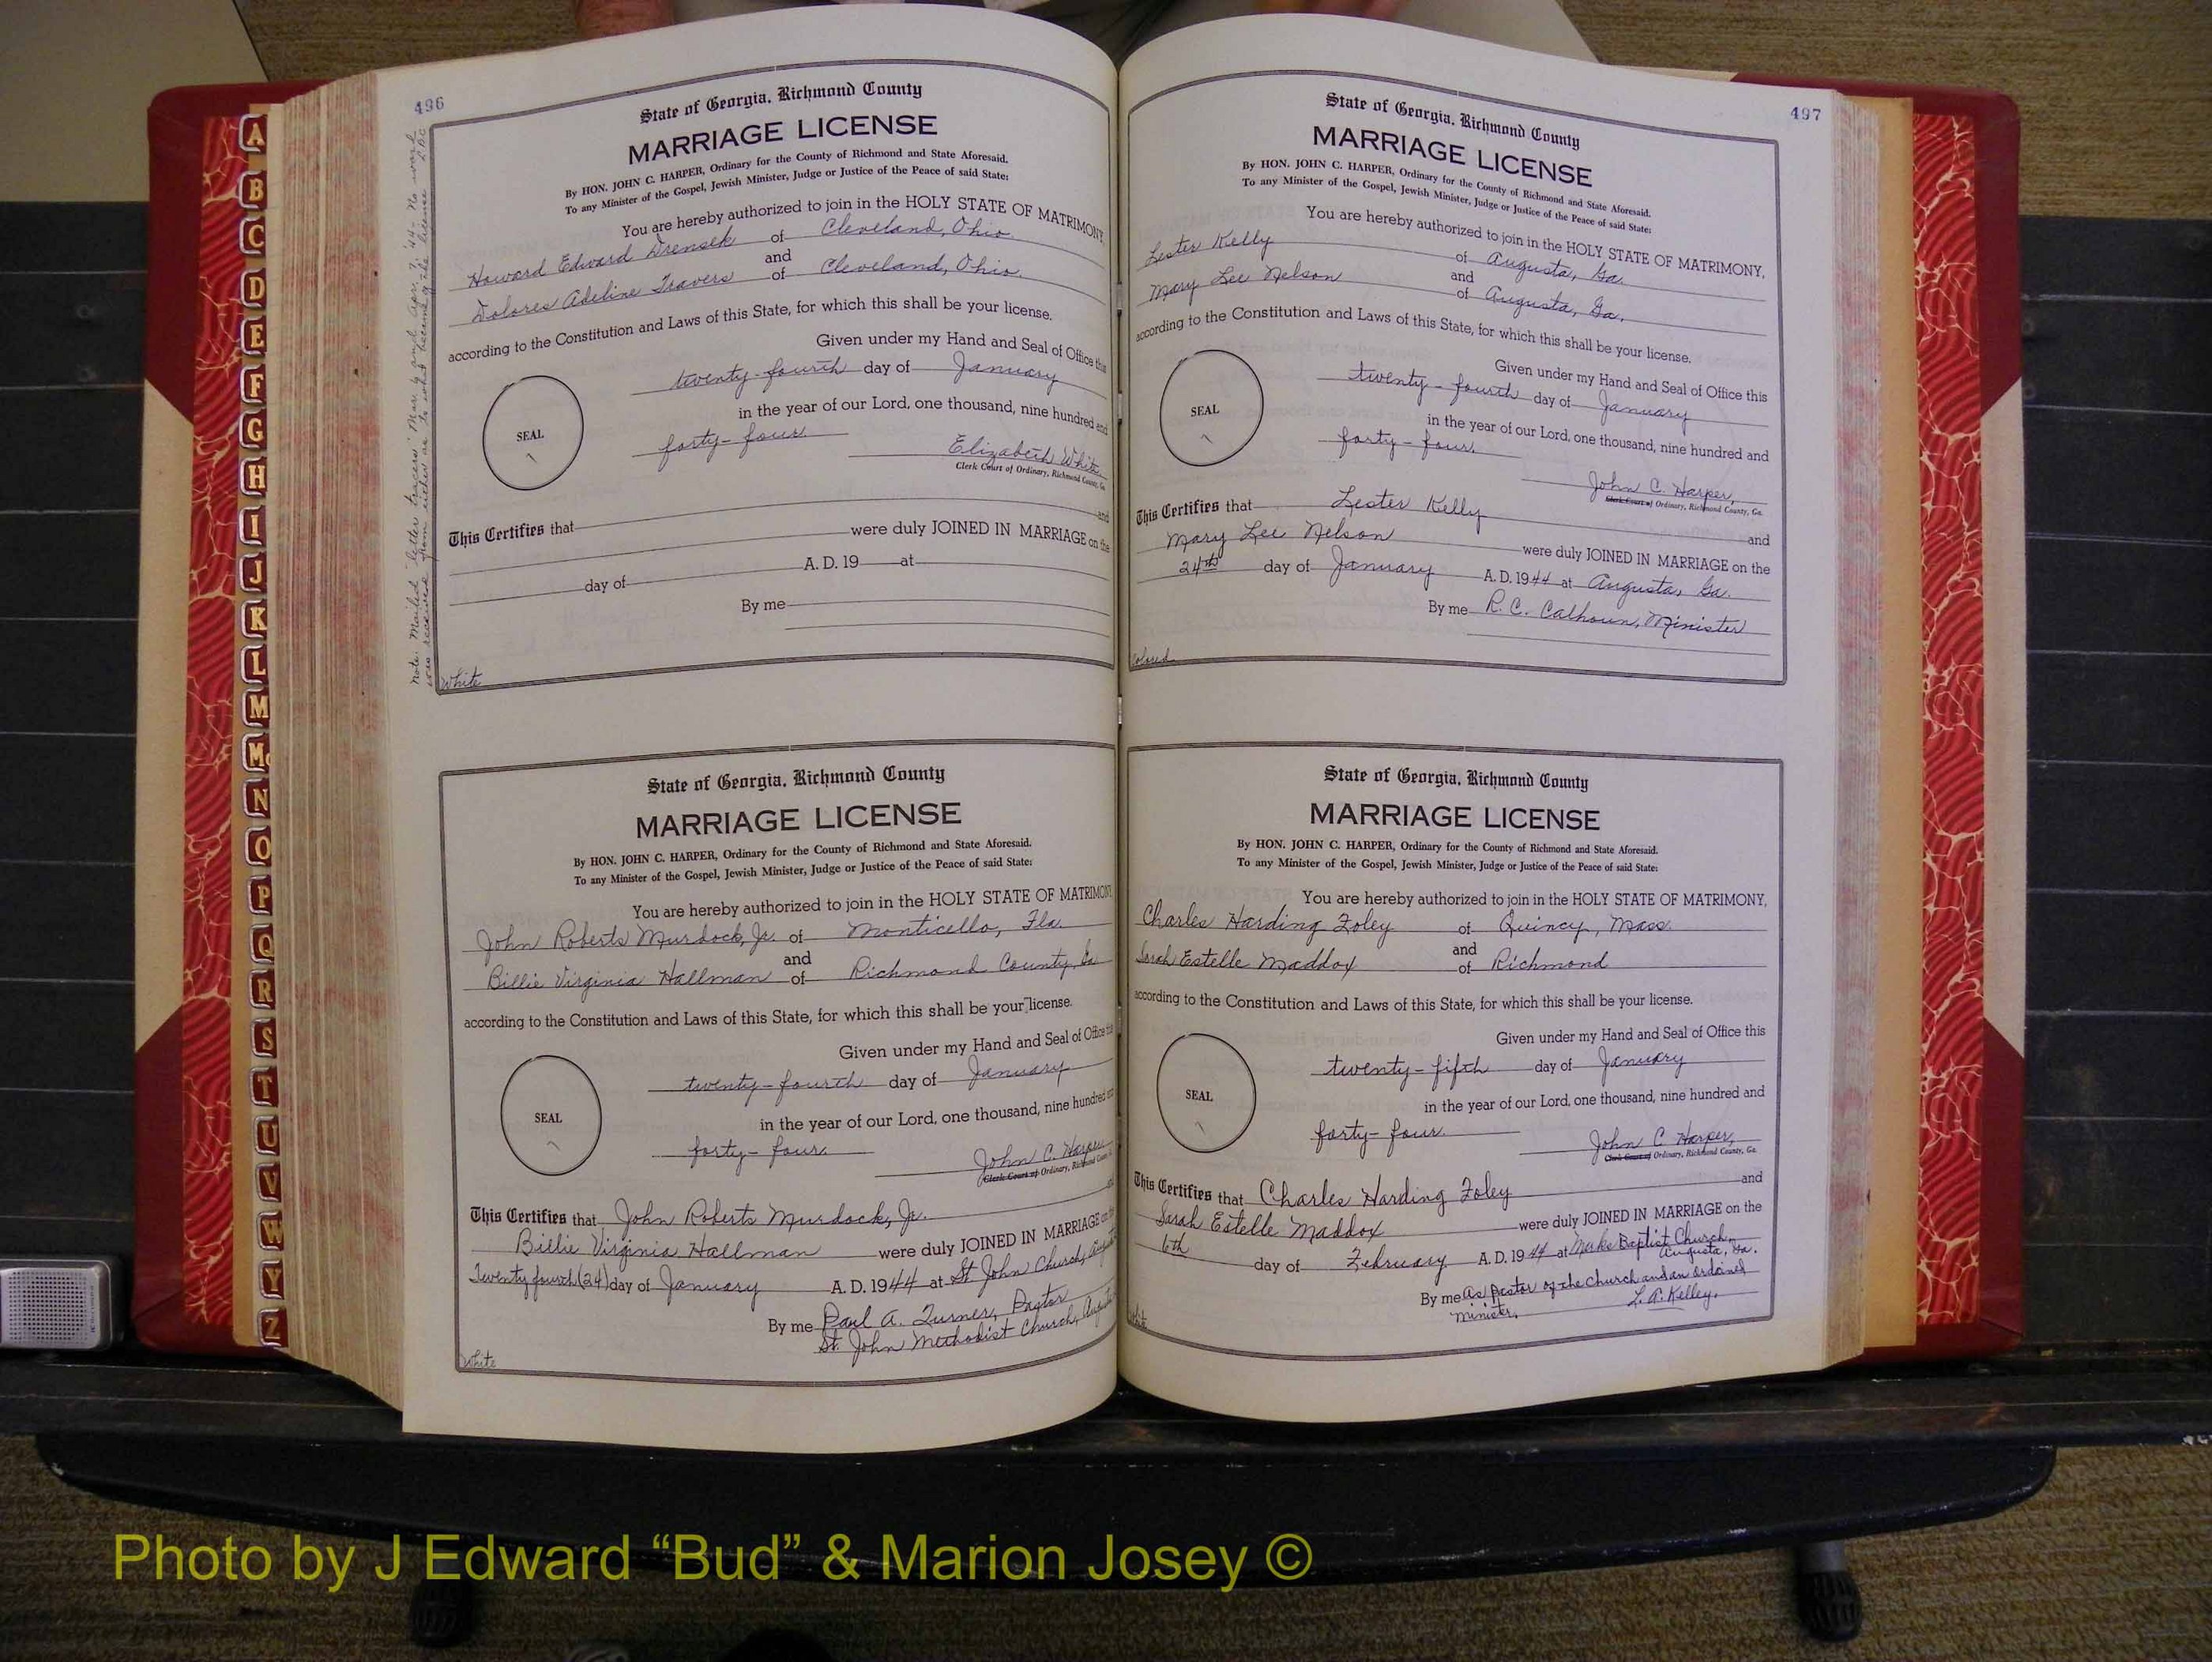 A
B
C
D
E
F
G
H
I
J
K
L
M
Mc
N
O
P
Q
R
S
T
U
V
W
Y
Z
496
Note: Mailed "letter tracers" Mar. 9 and Apr. 7, '44 - No word
was received from either as to what became of the license
State of Georgia, Richmond County
MARRIAGE LICENSE
By HON. JOHN C. HARPER, Ordinary for the County of Richmond and State Aforesaid.
To any Minister of the Gospel, Jewish Minister, Judge or Justice of the Peace of said State:
You are hereby authorized to join in the HOLY STATE OF MATRIMONY,
Howard Edward Drensek of Cleveland, Ohio.
and
Dolores Adeline Travers of Cleveland, Ohio.
according to the Constitution and Laws of this State, for which this shall be your license.
Given under my Hand and Seal of Office this
twenty-fourth day of January
in the year of our Lord, one thousand, nine hundred and
SEAL
forty-four.
Elizabeth White,
Clerk Court of Ordinary, Richmond County, Ga.
and
This Certifies that
were duly JOINED IN MARRIAGE on the
day of A. D. 19 at
By me
White
State of Georgia, Richmond County
MARRIAGE LICENSE
By HON. JOHN C. HARPER, Ordinary for the County of Richmond and State Aforesaid.
To any Minister of the Gospel, Jewish Minister, Judge or Justice of the Peace of said State:
You are hereby authorized to join in the HOLY STATE OF MATRIMONY,
John Roberts Murdock, Jr. of Monticello, Fla.
and
Billie Virginia Hallman of Richmond County, Ga.
according to the Constitution and Laws of this State, for which this shall be your license.
Given under my Hand and Seal of Office this
twenty-fourth day of January
in the year of our Lord, one thousand, nine hundred and
SEAL
forty-four.
John C. Harper
Clerk Court of Ordinary, Richmond County
This Certifies that John Roberts Murdock, Jr. and
Billie Virginia Hallman were duly JOINED IN MARRIAGE on the
Twenty fourth (24) day of January A. D. 1944 at St John Church, Augusta
By me Paul A. Turner, Pastor
St. John Methodist Church, Augusta
White
497
State of Georgia, Richmond County
MARRIAGE LICENSE
By HON. JOHN C. HARPER, Ordinary for the County of Richmond and State Aforesaid.
To any Minister of the Gospel, Jewish Minister, Judge or Justice of the Peace of said State:
You are hereby authorized to join in the HOLY STATE OF MATRIMONY,
Lester Kelly of Augusta, Ga.
and
Mary Lee Nelson of Augusta, Ga.
according to the Constitution and Laws of this State, for which this shall be your license.
Given under my Hand and Seal of Office this
twenty-fourth day of January
in the year of our Lord, one thousand, nine hundred and
SEAL
forty-four.
John C. Harper,
Clerk Court of Ordinary, Richmond County, Ga.
This Certifies that Lester Kelly and
Mary Lee Nelson were duly JOINED IN MARRIAGE on the
24th day of January A. D. 1944 at Augusta, Ga.
By me R. C. Calhoun, Minister
Colored
State of Georgia, Richmond County
MARRIAGE LICENSE
By HON. JOHN C. HARPER, Ordinary for the County of Richmond and State Aforesaid.
To any Minister of the Gospel, Jewish Minister, Judge or Justice of the Peace of said State:
You are hereby authorized to join in the HOLY STATE OF MATRIMONY,
Charles Harding Foley of Quincy, Mass.
and
Sarah Estelle Maddox of Richmond
according to the Constitution and Laws of this State, for which this shall be your license.
Given under my Hand and Seal of Office this
twenty-fifth day of January
in the year of our Lord, one thousand, nine hundred and
SEAL
forty-four.
John C. Harper,
Clerk Court of Ordinary, Richmond County, Ga.
This Certifies that Charles Harding Foley and
Sarah Estelle Maddox were duly JOINED IN MARRIAGE on the
6th day of February A. D. 1944 at Marks Baptist Church,
Augusta, Ga.
By me as pastor of the church and an ordained
minister, L. A. Kelley.
White
Photo by J Edward “Bud” & Marion Josey ©